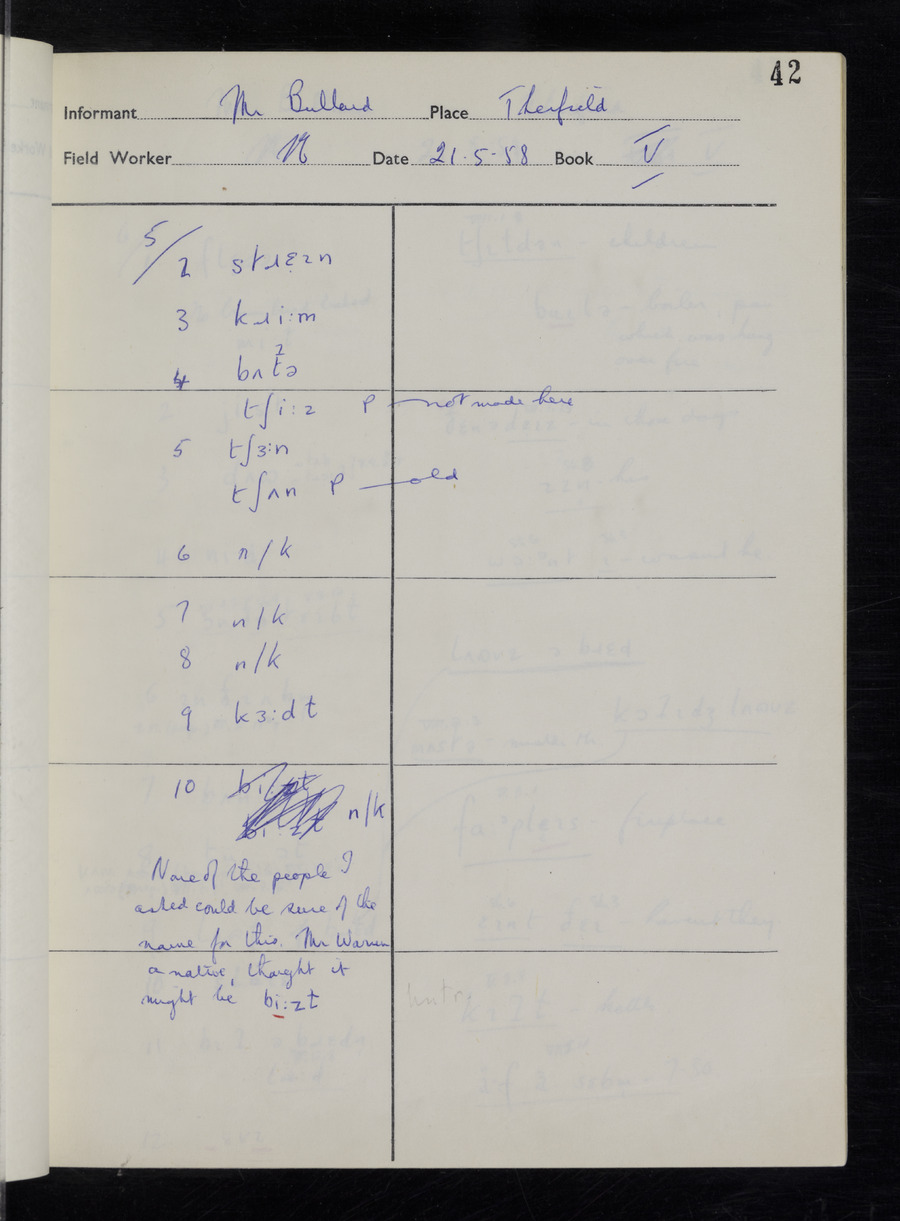 42
Informant Mr Bullard Place Therfield
Field Worker N Date 21.5.58 Book V
5/2 stɹɛɪn
3 kɹi:m
4 bʌtə
tʃi:z P — not made here
5 tʃɜ:n
tʃʌn P — old
6 n/k
7 n/k
8 n/k
9 kɜ:dt
10 n/k
None of the people I
asked could be sure of the
name for this. Mr Warren
a native, thought it
might be bi:zt